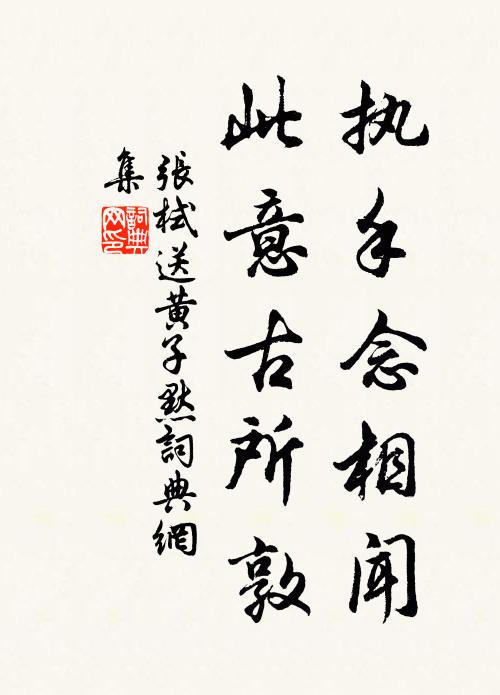 执手念相闻
此意古所敦
張栻送黄子默詞典網
集
詞典
网印